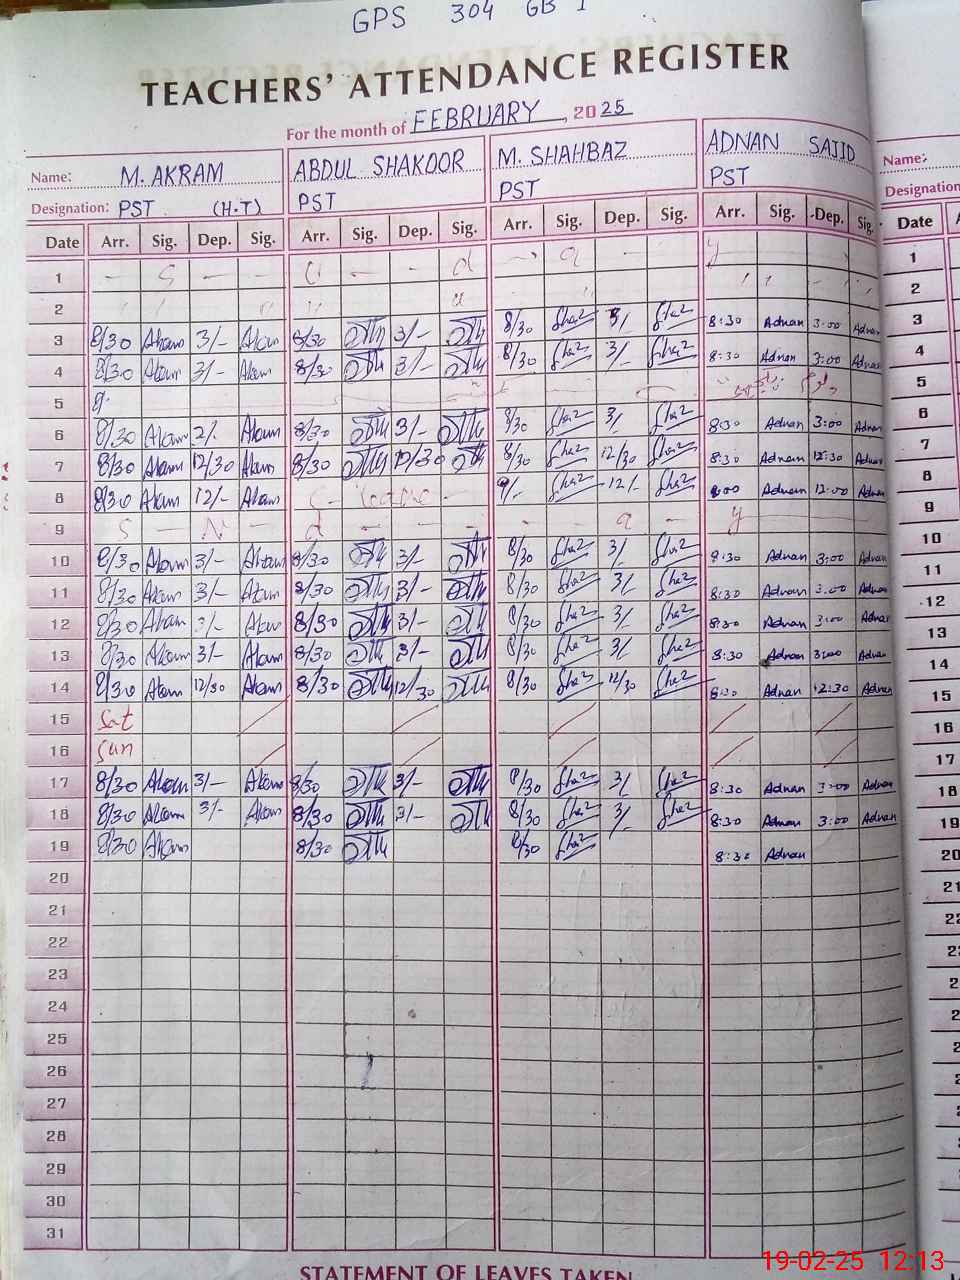 GPS 304 GB I
TEACHERS' ATTENDANCE REGISTER
For the month of FEBRUARY, 2025
Name: M. AKRAM ABDUL SHAKOOR M. SHAHBAZ ADNAN SAJID Name:
Designation: PST (H.T) PST PST PST Designation
Date Arr. Sig. Dep. Sig. Arr. Sig. Dep. Sig. Arr. Sig. Dep. Sig. Arr. Sig. Dep. Sig. Date
1 1
2 2
3 8/30 Akam 3/- Akam 8/30 3/- 8/30 Sha2 3/ Sha2 8:30 Adnan 3:00 Adnan 3
4 8/30 Akam 3/- Akam 8/30 3/- 8/30 Sha2 3/ Sha2 8:30 Adnan 3:00 Adnan 4
5 5
6 8/30 Akam Akam 8/30 3/- 8/30 Sha2 3/ Sha2 8:30 Adnan 3:00 Adnan 6
7 8/30 Akam 12/30 Akam 8/30 12/30 8/30 Sha2 12/30 Sha2 8:30 Adnan 12:30 Adnan 7
8 8/30 Akam 12/- Akam 9/- Sha2 12/- Sha2 Adnan 12:00 Adnan 8
9 S N d a y 9
10 8/30 Akam 3/- Akam 8/30 3/- 8/30 Sha2 3/ Sha2 8:30 Adnan 3:00 Adnan 10
11 8/30 Akam 3/- Akam 8/30 3/- 8/30 Sha2 3/ Sha2 8:30 Adnan 3:00 Adnan 11
12 8/30 Akam 3/- Akam 8/30 3/- 8/30 Sha2 3/ Sha2 8:30 Adnan 3:00 Adnan 12
13 8/30 Akam 3/- Akam 8/30 3/- 8/30 Sha2 3/ Sha2 8:30 Adnan 3:00 Adnan 13
14 8/30 Akam 12/30 Akam 8/30 12/30 8/30 Sha2 12/30 Sha2 8:30 Adnan 12:30 Adnan 14
15 Sat 15
16 Sun 16
17 8/30 Akam 3/- Akam 8/30 3/- 8/30 Sha2 3/ Sha2 8:30 Adnan 3:00 Adnan 17
18 8/30 Akam 3/- Akam 8/30 3/- 8/30 Sha2 3/- Sha2 8:30 Adnan 3:00 Adnan 18
19 8/30 Akam 8/30 8/30 Sha2 8:30 Adnan 19
20 20
21 21
22
23
24
25
26
27
28
29
30
31
STATEMENT OF LEAVES TAKEN
19-02-25 12:13